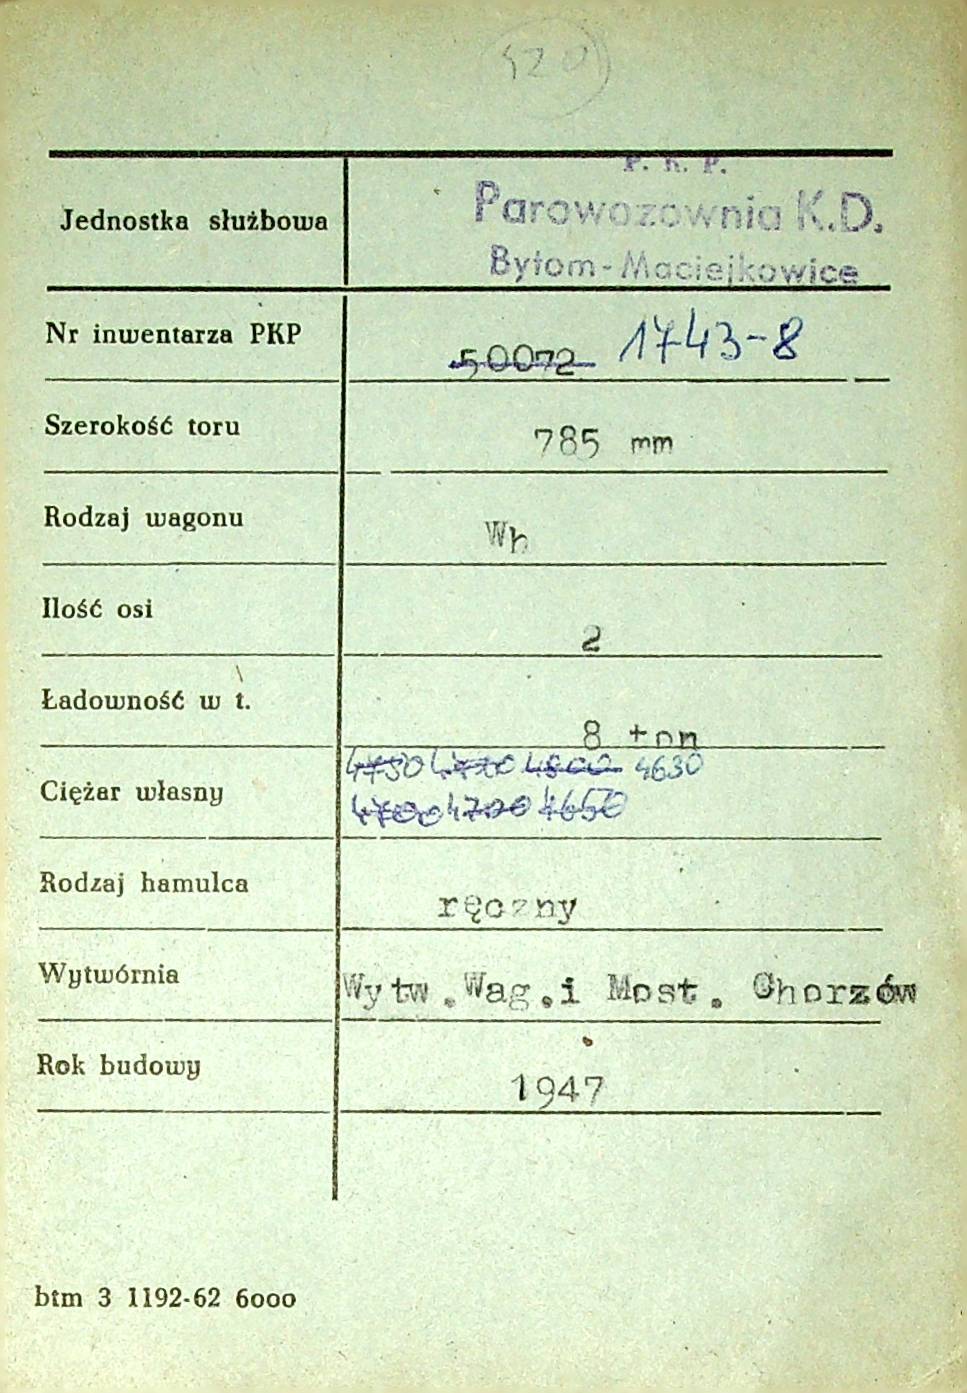 420
P. K. P.
Jednostka służbowa Parowozownia K.D.
Bytom-Maciejkowice
Nr inwentarza PKP 50072 1743-8
Szerokość toru 785 mm
Rodzaj wagonu Wh
Ilość osi 2
Ładowność w t. 8 ton
4750 4720 4800 4630
Ciężar własny 4700 4700 4650
Rodzaj hamulca ręczny
Wytwórnia Wytw.Wag.i Most. Chorzów
Rok budowy 1947
btm 3 1192-62 6000